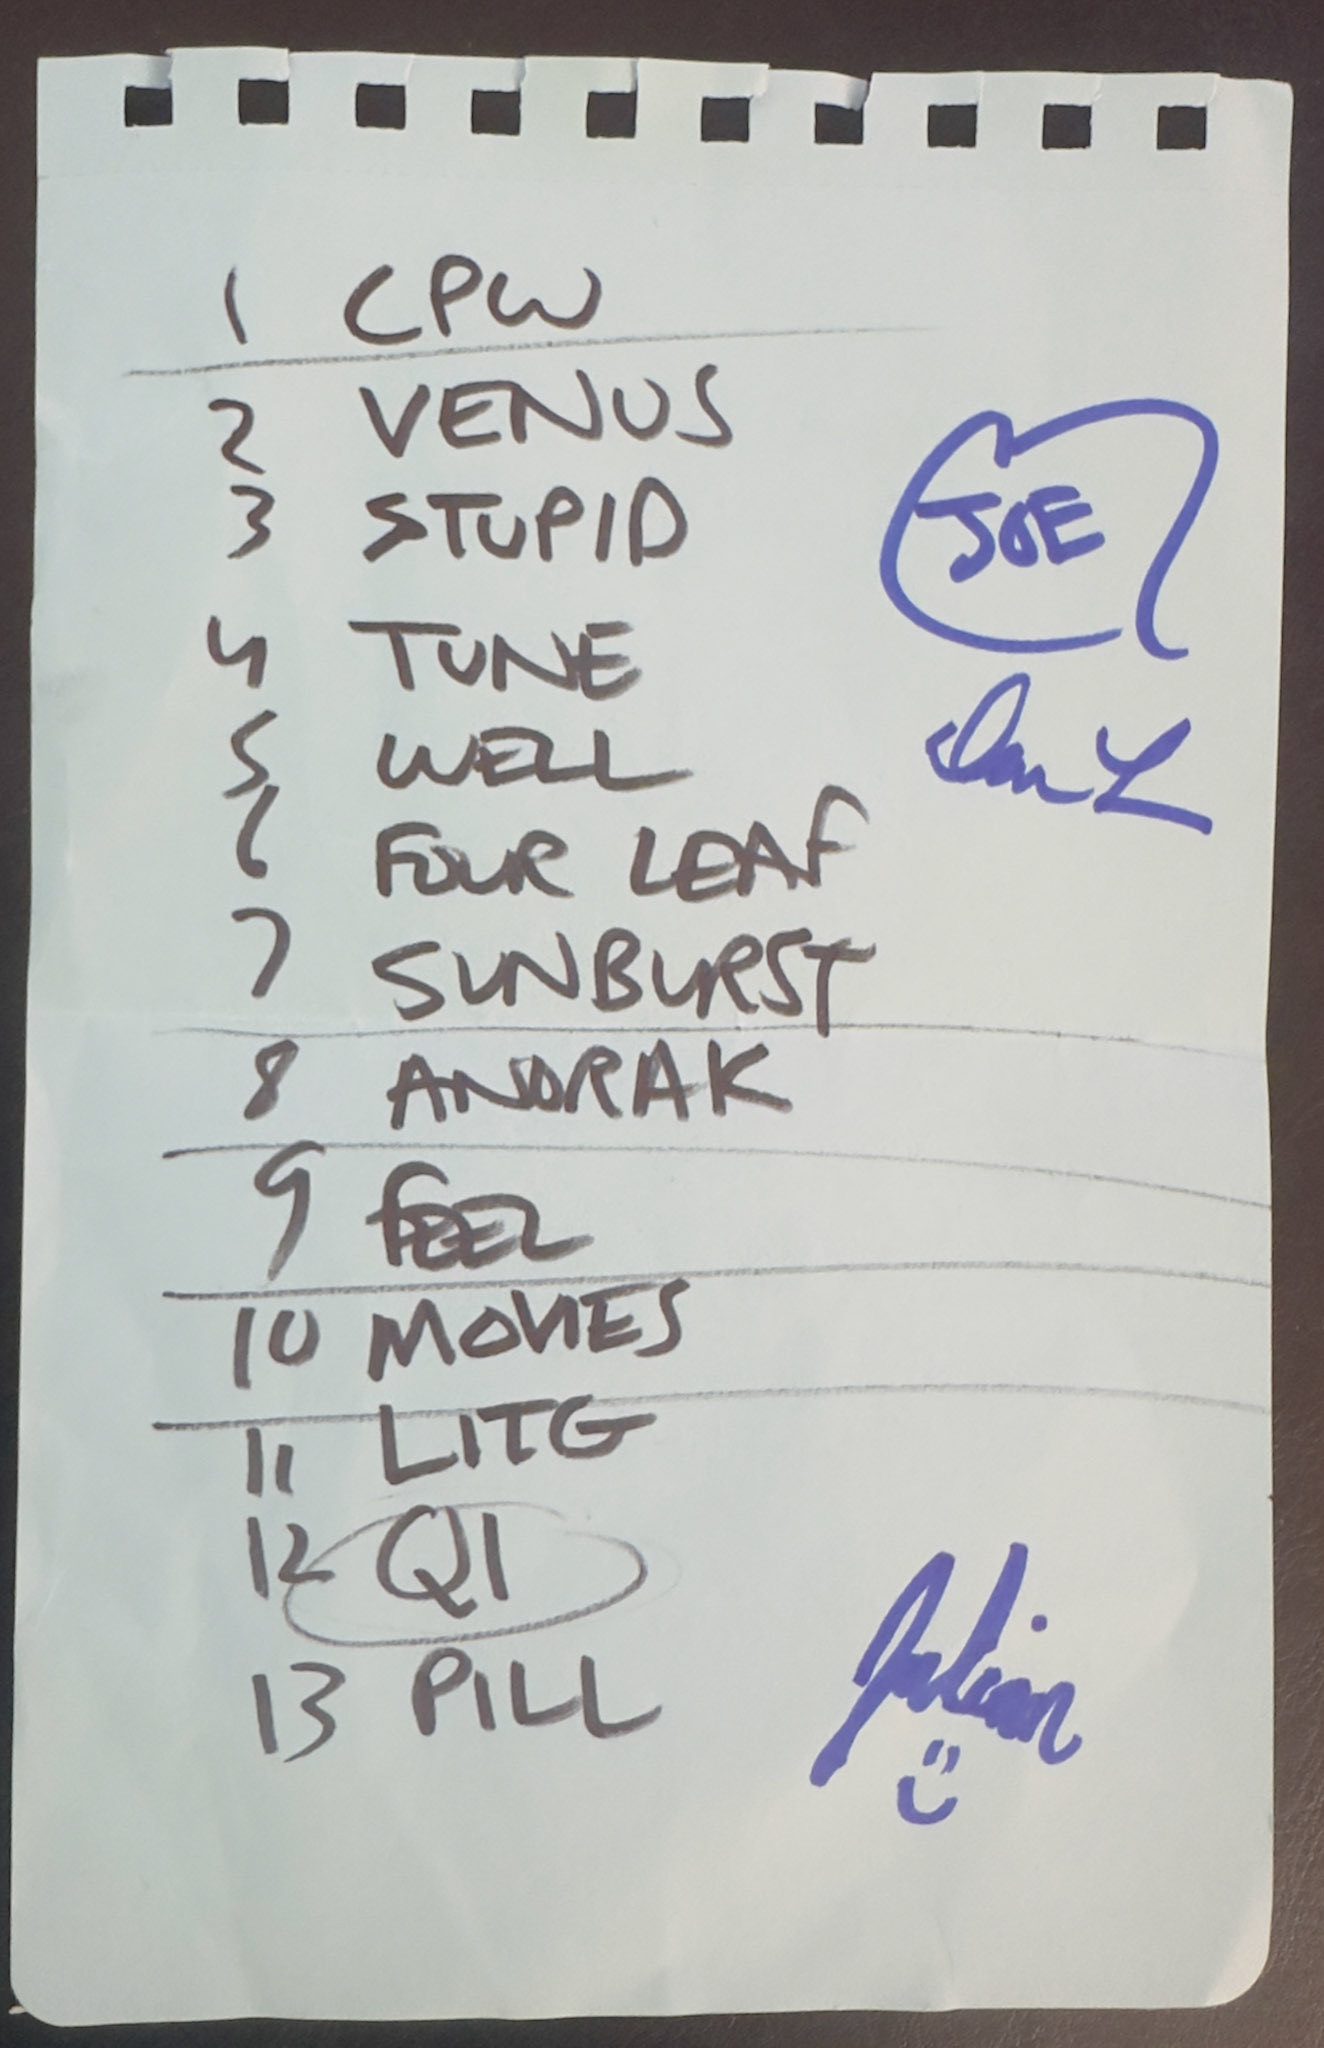 1 CPW
2 VENUS
3 STUPID
JOE
4 TUNE
5 WELL
Dan L
6 FOUR LEAF
7 SUNBURST
8 ANORAK
9 FEEL
10 MOVIES
11 LITG
12 Q1
13 PILL
Julian